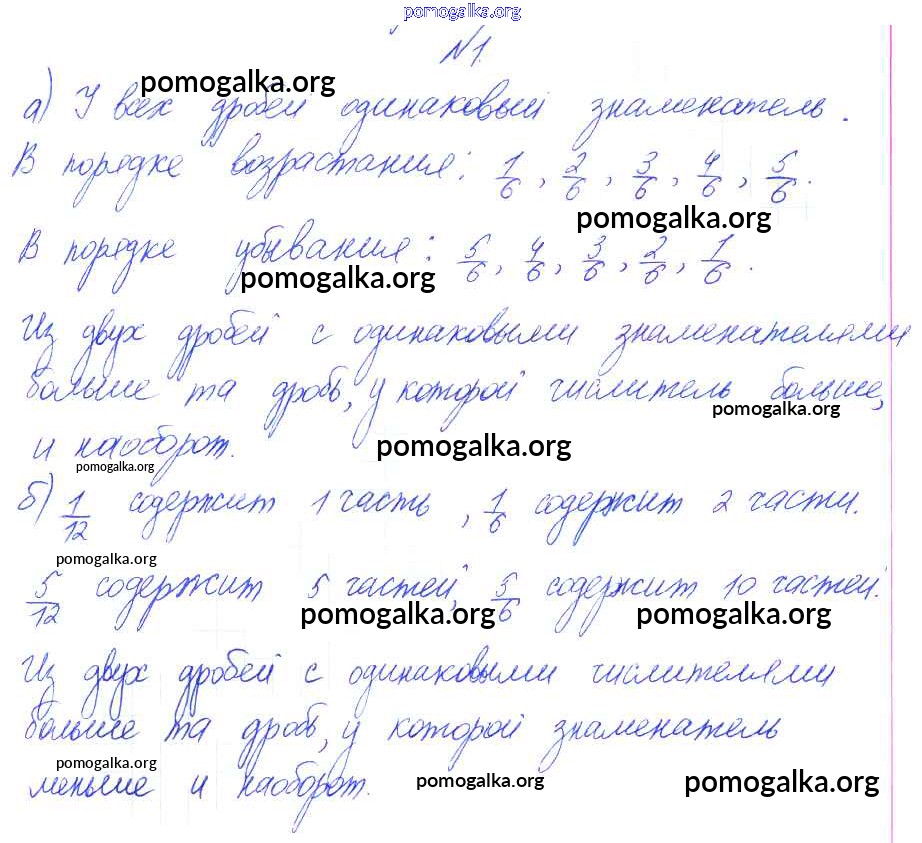 pomogalka.org
№1.
pomogalka.org
а) У всех дробей одинаковый знаменатель.
В порядке возрастания: 1/6, 2/6, 3/6, 4/6, 5/6.
pomogalka.org
В порядке убывания: 5/6, 4/6, 3/6, 2/6, 1/6.
pomogalka.org
Из двух дробей с одинаковыми знаменателями
больше та дробь, у которой числитель больше,
pomogalka.org
и наоборот.
pomogalka.org
pomogalka.org
б) 1/12 содержит 1 часть, 1/6 содержит 2 части.
pomogalka.org
5/12 содержит 5 частей, 5/6 содержит 10 частей.
pomogalka.org pomogalka.org
Из двух дробей с одинаковыми числителями
больше та дробь, у которой знаменатель
pomogalka.org
меньше и наоборот.
pomogalka.org pomogalka.org